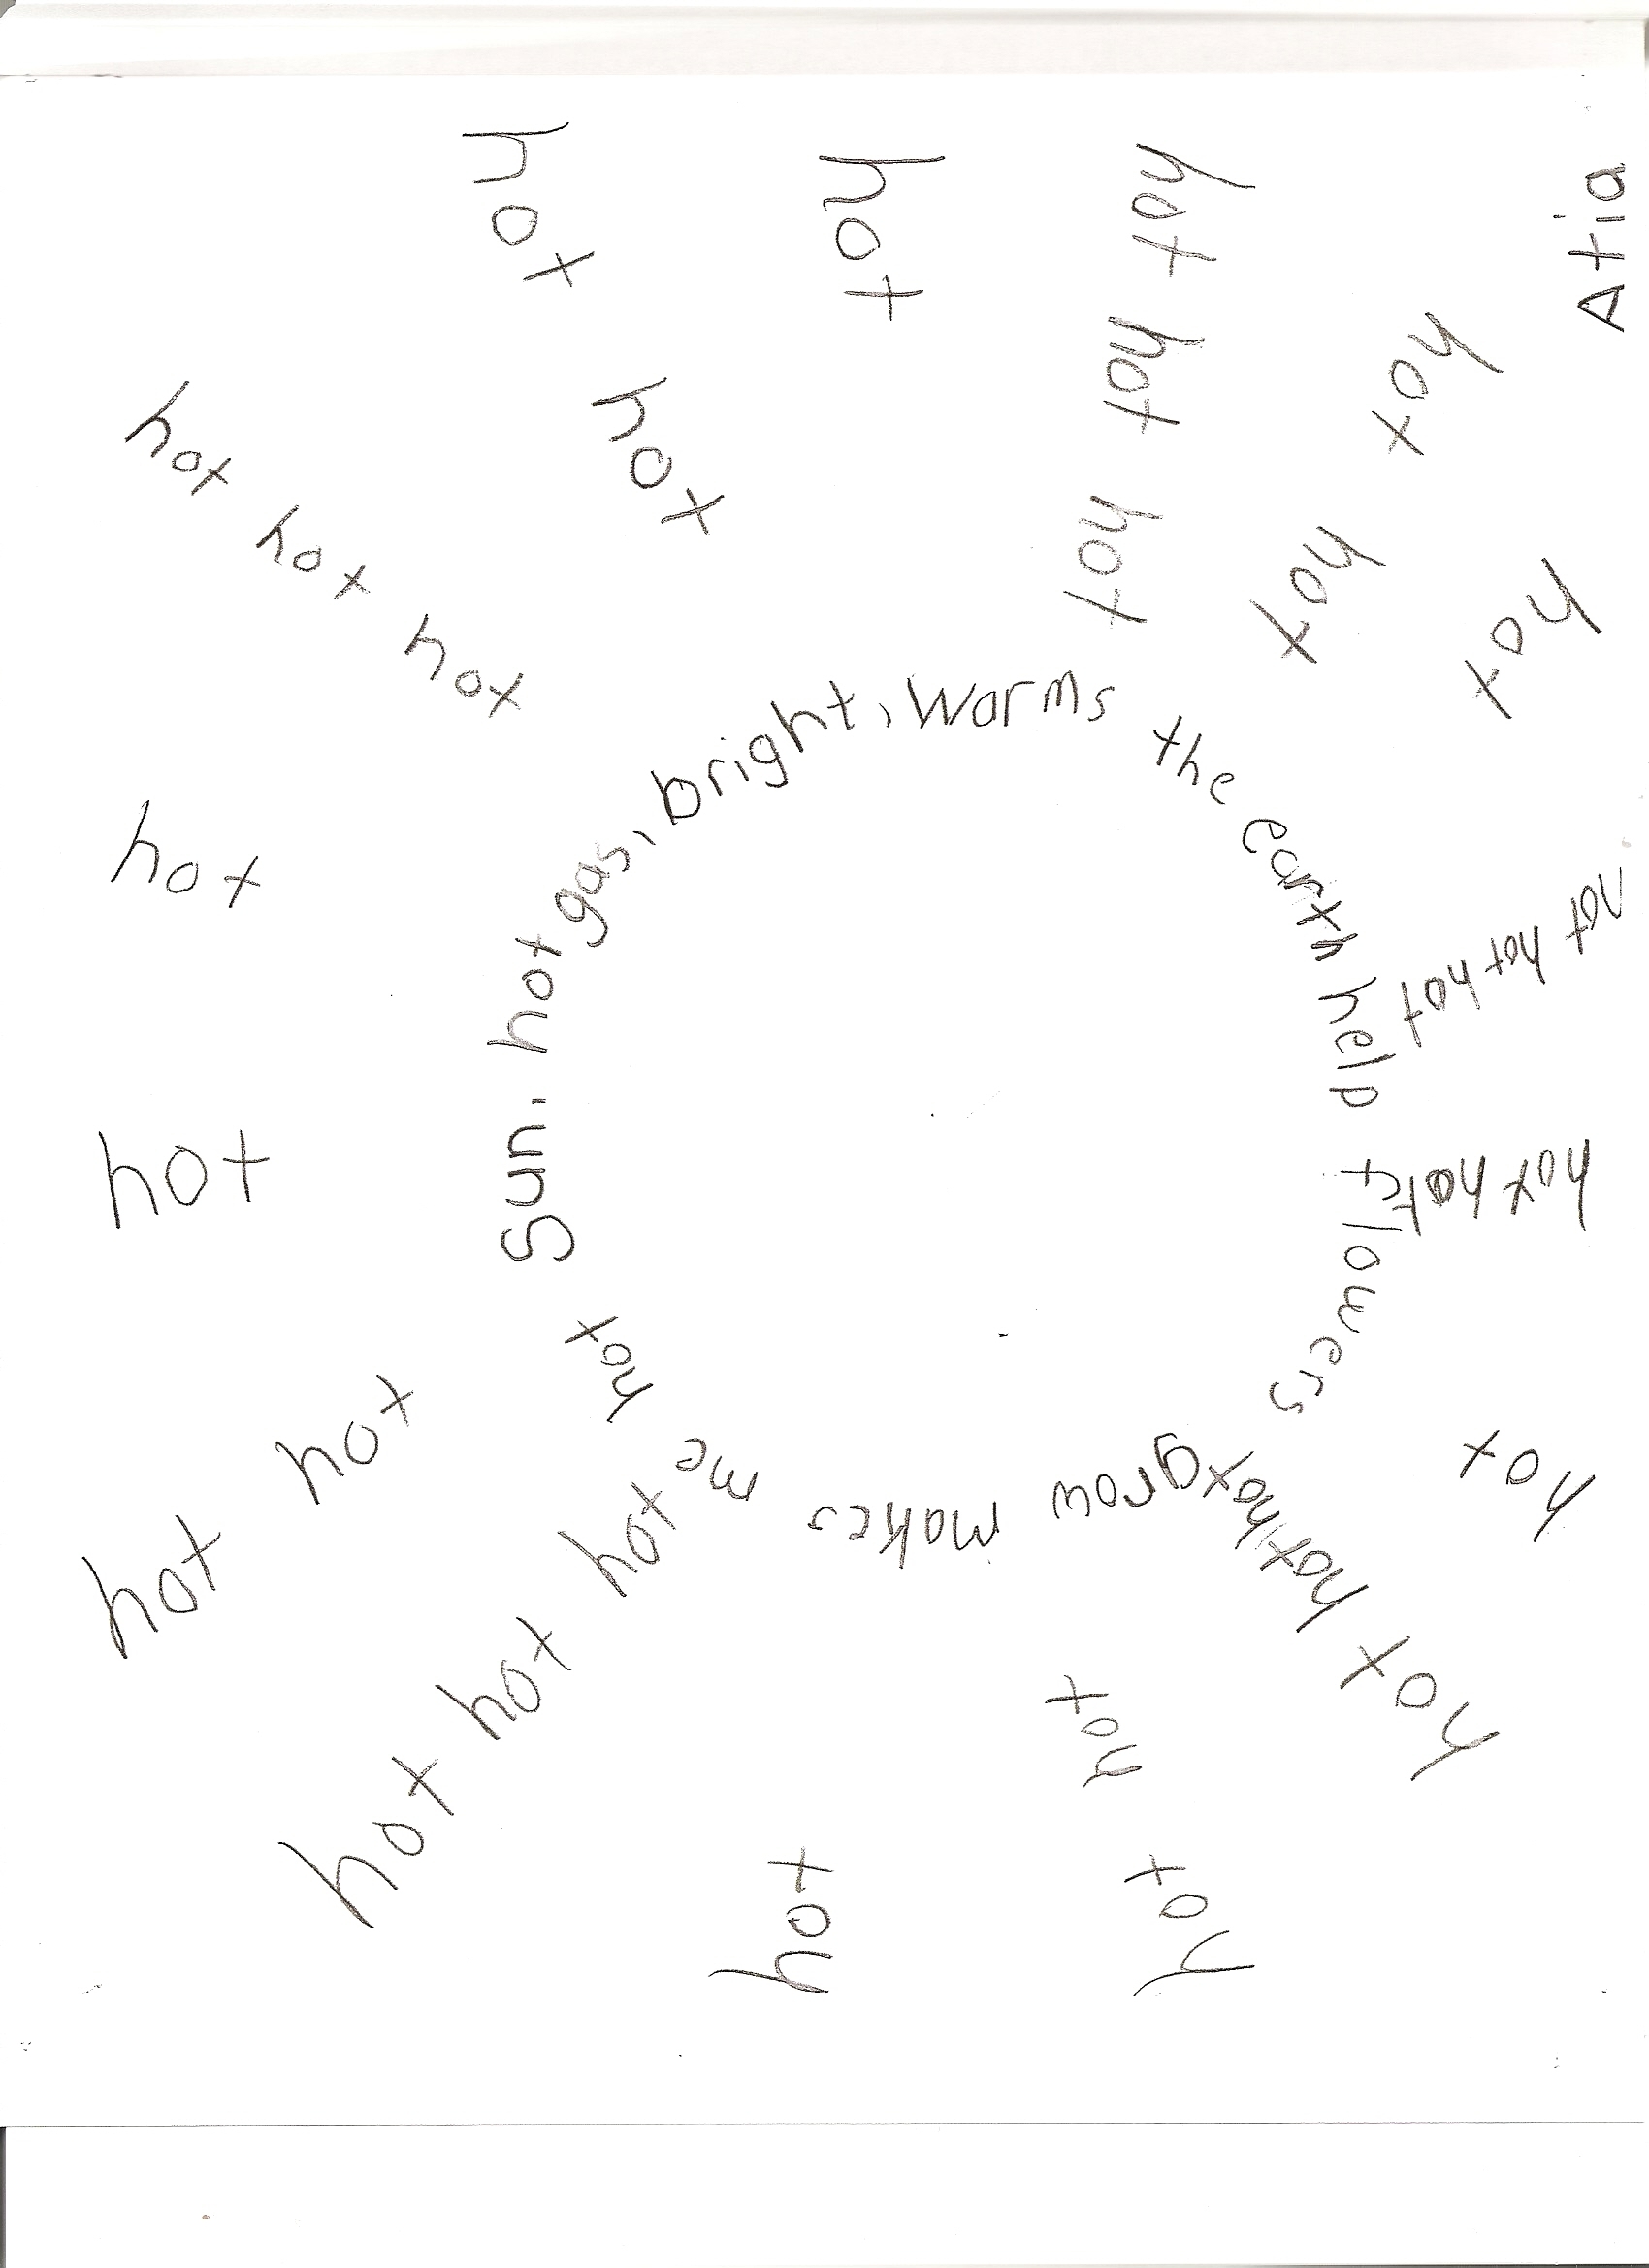 Atia
Sun, hot gas, bright, Warms the earth help flowers grow makes me hot
hot hot
hot
hot hot hot
hot hot
hot
hot hot hot
hot hot
hot
hot hot hot
hot hot
hot
hot hot hot
hot hot
hot
hot
hot hot hot